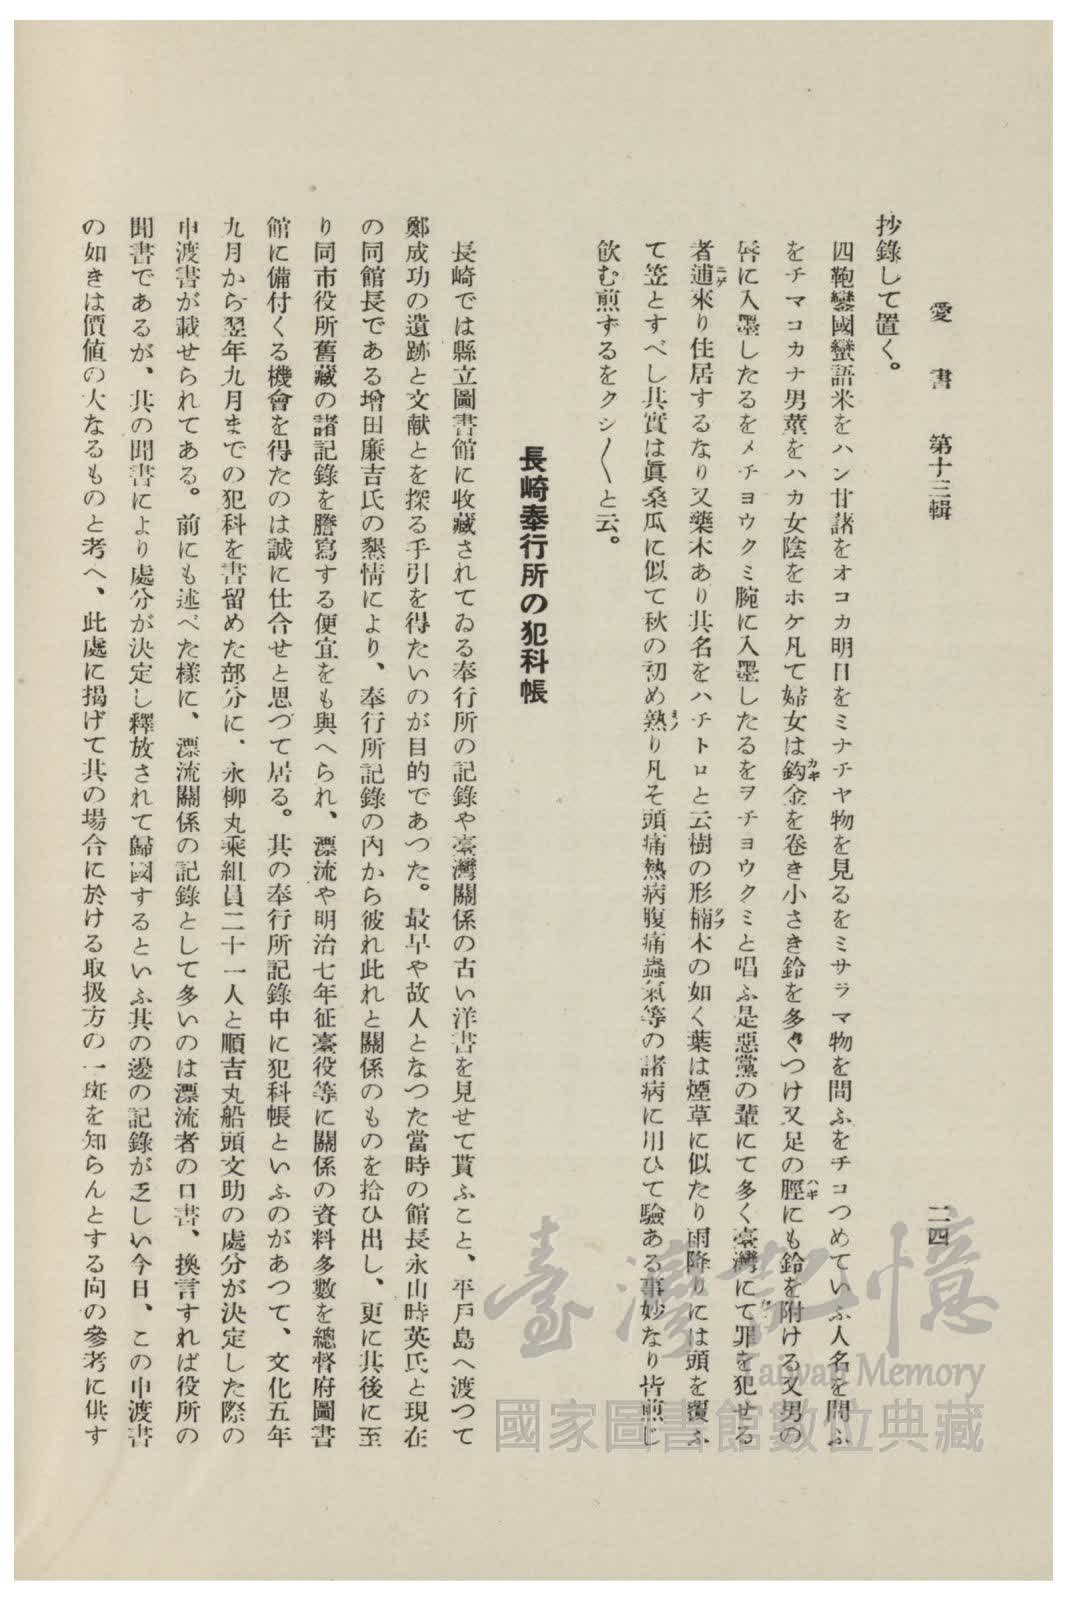 愛書 第十三輯 二四
抄錄して置く。
四鞄鑾國蠻語米をハン甘諸をオコカ明日をミナチヤ物を見るをミサラマ物を問ふをチコつめていふ人名を問ふ
をチマコカナ男莖をハカ女陰をホケ凡て婦女は鈎金を卷き小さき鈴を多くつけ又足の脛にも鈴を附ける又男の
唇に入墨したるをメチヨウクミ腕に入墨したるをヲチヨウクミと唱ふ是惡黨の輩にて多く臺灣にて罪を犯せる
者逋來り住居するなり又藥木あり其名をハチトロと云樹の形楠木の如く葉は煙草に似たり雨降りには頭を覆ふ
て笠とすべし其實は眞桑瓜に似て秋の初め熟り凡そ頭痛熱病腹痛蟲氣等の諸病に用ひて驗ある事妙なり皆煎じ
飲む煎ずるをクシ〱と云。
長崎奉行所の犯科帳
長崎では縣立圖書館に收藏されてゐる奉行所の記錄や臺灣關係の古い洋書を見せて貰ふこと、平戶島へ渡つて
鄭成功の遺跡と文献とを探る手引を得たいのが目的であつた。最早や故人となつた當時の館長永山時英氏と現在
の同館長である增田廉吉氏の懇情により、奉行所記錄の內から彼れ此れと關係のものを拾ひ出し、更に其後に至
り同市役所舊藏の諸記錄を謄寫する便宜をも與へられ、漂流や明治七年征臺役等に關係の資料多數を總督府圖書
館に備付くる機會を得たのは誠に仕合せと思つて居る。其の奉行所記錄中に犯科帳といふのがあつて、文化五年
九月から翌年九月までの犯科を書留めた部分に、永柳丸乘組員二十一人と順吉丸船頭文助の處分が決定した際の
申渡書が載せられてある。前にも述べた樣に、漂流關係の記錄として多いのは漂流者の口書、換言すれば役所の
聞書であるが、其の聞書により處分が決定し釋放されて歸國するといふ其の邊の記錄が乏しい今日、この申渡書
の如きは價値の大なるものと考へ、此處に揭げて其の場合に於ける取扱方の一斑を知らんとする向の參考に供す
臺灣記憶
Taiwan Memory
國家圖書館數位典藏